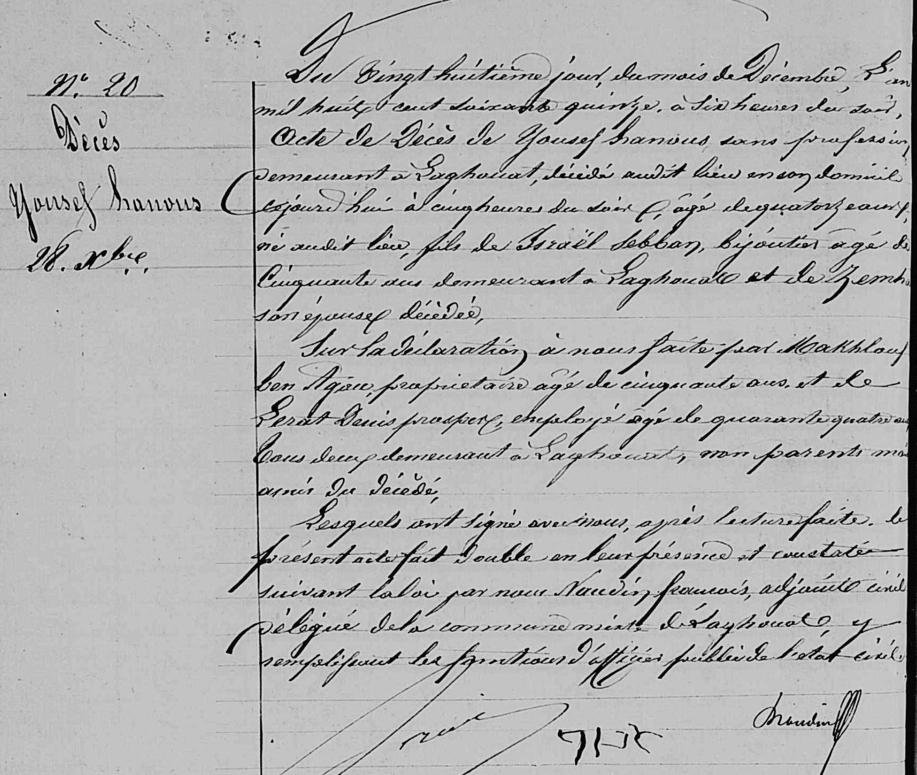 N° 20
Décès
Yousef hanous
28. Xbre.
Du Vingt huitième jour, du mois de Décembre, L'an
mil huit cent soixante quinze. à Six heures du soir,
Acte de Décès de Yousef hanous, sans profession,
demeurant à Laghouat, décédé audit lieu en son domicile
cejourd'hui à cinq heures du soir, âgé de quatorze ans,
né audit lieu, fils de Israël Sebban, bijoutier âgé de
Cinquante ans demeurant à Laghouat et de
son épouse décédée,
Sur la déclaration à nous faite par Makhlouf
ben propriétaire âgé de cinquante ans. et de
Denis prosper, employé âgé de quarante quatre ans,
tous deux demeurant à Laghouat, non parents mais
amis du décédé,
Lesquels ont signé avec nous, après lecture faite. le
présent acte fait double en leur présence et constaté
suivant la loi par nous Naudin françois, adjoint civil
délégué de la commune mixte de Laghouat, y
remplissant les fonctions d'officier public de l'état civil.
Naudin